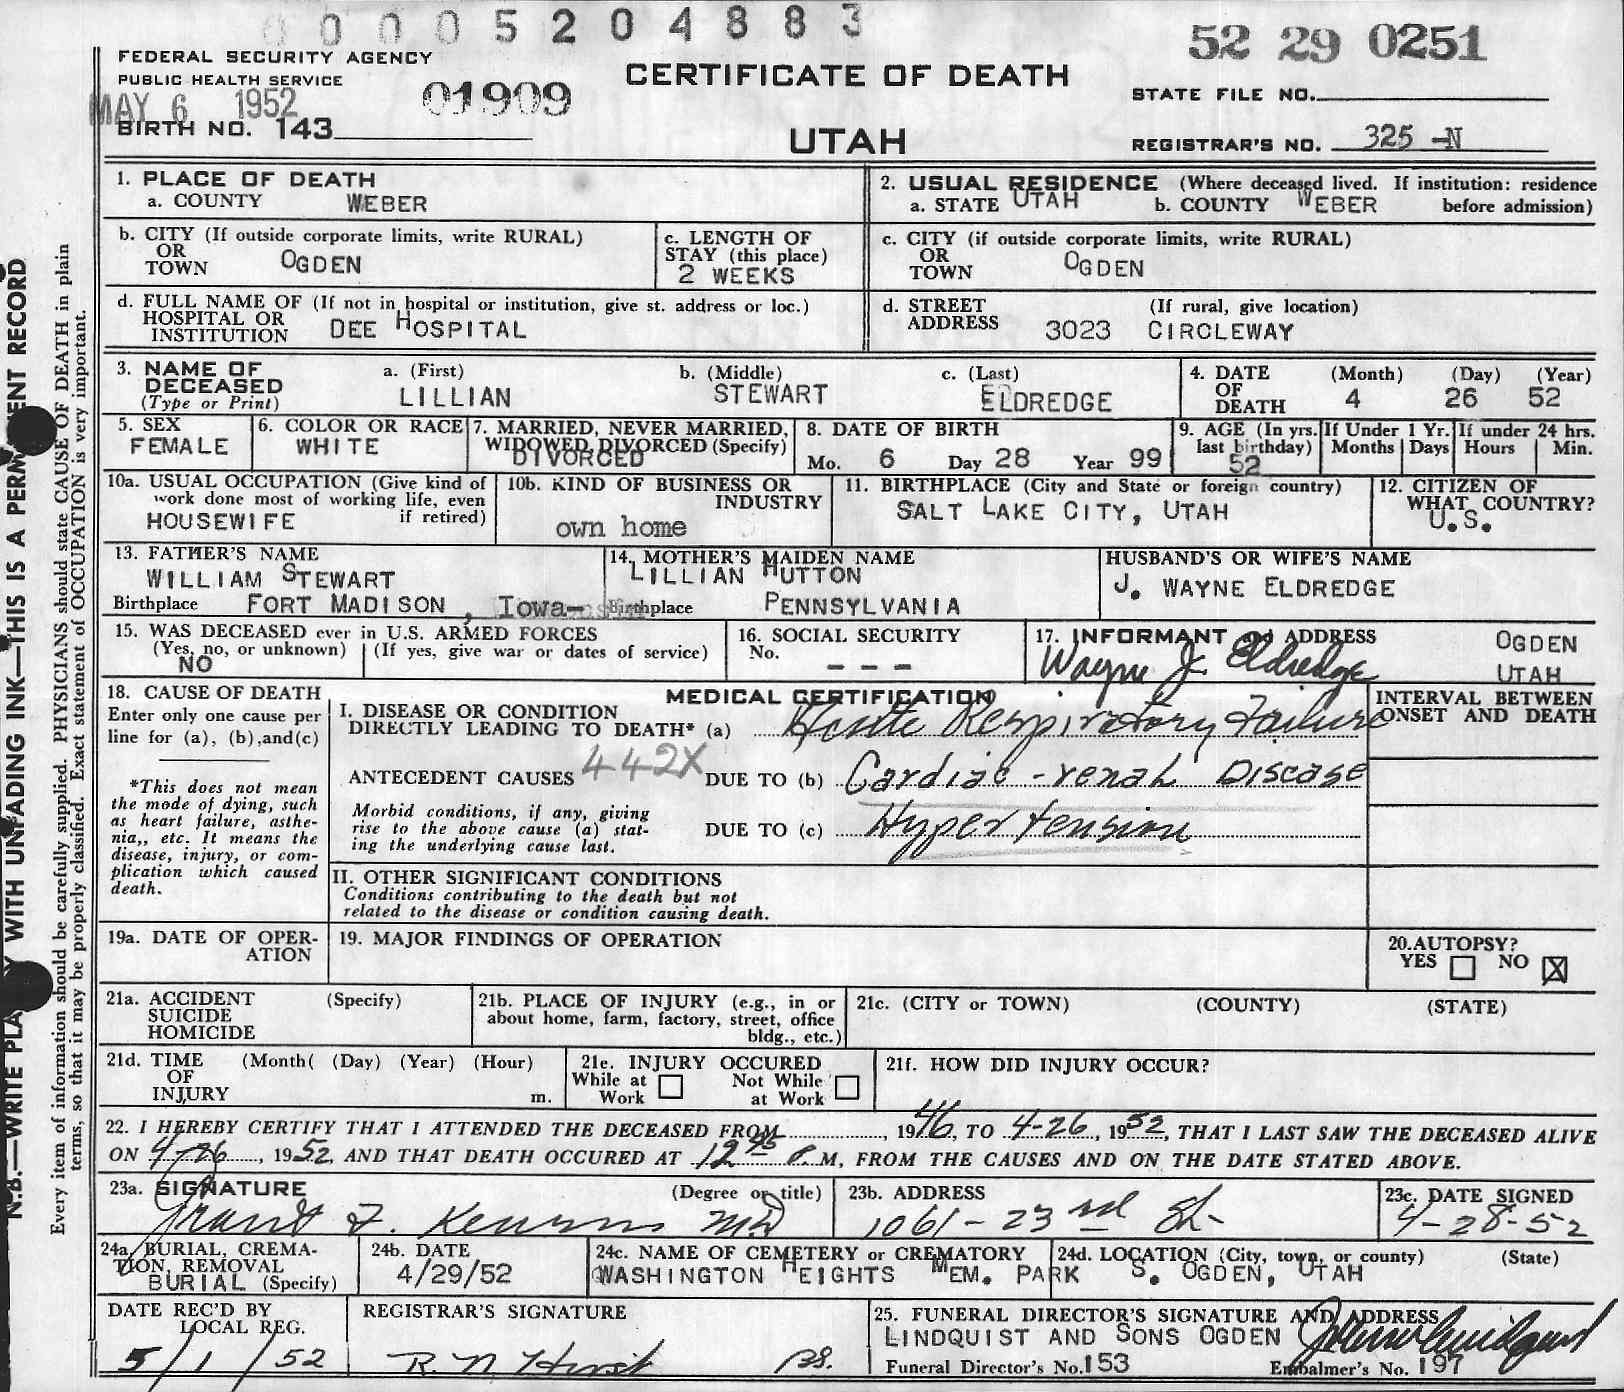 0 0 0 0 5 2 0 4 8 8 3
52 29 0251
FEDERAL SECURITY AGENCY
PUBLIC HEALTH SERVICE
MAY 6 1952
01909
CERTIFICATE OF DEATH
STATE FILE NO.
BIRTH NO. 143
UTAH
REGISTRAR'S NO. 325 -N
N.B.—WRITE PLA WITH UNFADING INK—THIS IS A PERM ENT RECORD
Every item of information should be carefully supplied. PHYSICIANS should state CAUSE OF DEATH in plain
terms, so that it may be properly classified. Exact statement of OCCUPATION is very important.
1. PLACE OF DEATH
a. COUNTY WEBER
2. USUAL RESIDENCE (Where deceased lived. If institution: residence
a. STATE UTAH b. COUNTY WEBER before admission)
b. CITY (If outside corporate limits, write RURAL)
OR
TOWN OGDEN
c. LENGTH OF
STAY (this place)
2 WEEKS
c. CITY (if outside corporate limits, write RURAL)
OR
TOWN OGDEN
d. FULL NAME OF (If not in hospital or institution, give st. address or loc.)
HOSPITAL OR
INSTITUTION DEE HOSPITAL
d. STREET (If rural, give location)
ADDRESS 3023 CIRCLEWAY
3. NAME OF
DECEASED
(Type or Print)
a. (First)
LILLIAN
b. (Middle)
STEWART
c. (Last)
ELDREDGE
4. DATE
OF
DEATH
(Month) (Day) (Year)
4 26 52
5. SEX
FEMALE
6. COLOR OR RACE
WHITE
7. MARRIED, NEVER MARRIED,
WIDOWED, DIVORCED (Specify)
DIVORCED
8. DATE OF BIRTH
Mo. 6 Day 28 Year 99
9. AGE (In yrs.
last birthday)
52
If Under 1 Yr.
Months Days
If under 24 hrs.
Hours Min.
10a. USUAL OCCUPATION (Give kind of
work done most of working life, even
HOUSEWIFE if retired)
10b. KIND OF BUSINESS OR
INDUSTRY
own home
11. BIRTHPLACE (City and State or foreign country)
SALT LAKE CITY, UTAH
12. CITIZEN OF
WHAT COUNTRY?
U.S.
13. FATHER'S NAME
WILLIAM STEWART
Birthplace FORT MADISON, Iowa-
14. MOTHER'S MAIDEN NAME
LILLIAN HUTTON
Birthplace PENNSYLVANIA
HUSBAND'S OR WIFE'S NAME
J. WAYNE ELDREDGE
15. WAS DECEASED ever in U.S. ARMED FORCES
(Yes, no, or unknown) (If yes, give war or dates of service)
NO
16. SOCIAL SECURITY
No.
- - -
17. INFORMANT and ADDRESS
Wayne J. Eldredge
OGDEN
UTAH
18. CAUSE OF DEATH
Enter only one cause per
line for (a), (b),and(c)
*This does not mean
the mode of dying, such
as heart failure, asthe-
nia,, etc. It means the
disease, injury, or com-
plication which caused
death.
MEDICAL CERTIFICATION
I. DISEASE OR CONDITION
DIRECTLY LEADING TO DEATH* (a) Acute Respiratory Failure
ANTECEDENT CAUSES 442X DUE TO (b) Cardiac-renal Disease
Morbid conditions, if any, giving
rise to the above cause (a) stat-
ing the underlying cause last.
DUE TO (c) Hypertension
INTERVAL BETWEEN
ONSET AND DEATH
II. OTHER SIGNIFICANT CONDITIONS
Conditions contributing to the death but not
related to the disease or condition causing death.
19a. DATE OF OPER-
ATION
19. MAJOR FINDINGS OF OPERATION
20.AUTOPSY?
YES NO X
21a. ACCIDENT (Specify)
SUICIDE
HOMICIDE
21b. PLACE OF INJURY (e.g., in or
about home, farm, factory, street, office
bldg., etc.)
21c. (CITY or TOWN) (COUNTY) (STATE)
21d. TIME (Month( (Day) (Year) (Hour)
OF
INJURY m.
21e. INJURY OCCURED
While at Not While
Work at Work
21f. HOW DID INJURY OCCUR?
22. I HEREBY CERTIFY THAT I ATTENDED THE DECEASED FROM , 1946, TO 4-26, 1952, THAT I LAST SAW THE DECEASED ALIVE
ON 4-26, 1952, AND THAT DEATH OCCURED AT 12 45 P.M, FROM THE CAUSES AND ON THE DATE STATED ABOVE.
23a. SIGNATURE (Degree or title)
Grant F. Kearns MD
23b. ADDRESS
1061-23rd St-
23c. DATE SIGNED
4-28-52
24a. BURIAL, CREMA-
TION, REMOVAL
BURIAL (Specify)
24b. DATE
4/29/52
24c. NAME OF CEMETERY or CREMATORY
WASHINGTON HEIGHTS MEM. PARK
24d. LOCATION (City, town, or county) (State)
S. OGDEN, UTAH
DATE REC'D BY
LOCAL REG.
5/1/52
REGISTRAR'S SIGNATURE
R. N. Hirst
25. FUNERAL DIRECTOR'S SIGNATURE AND ADDRESS
LINDQUIST AND SONS OGDEN
Funeral Director's No.153 Embalmer's No. 197